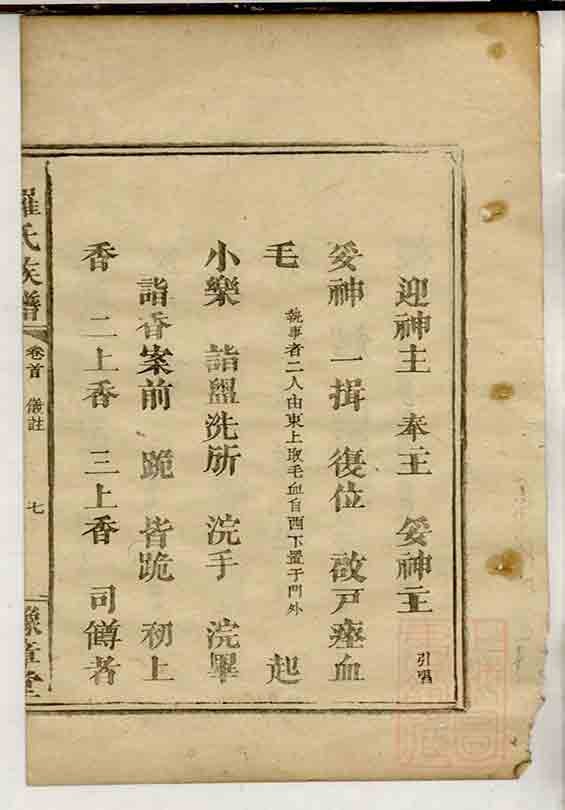 迎神主　奉主　妥神主 引唱
妥神　一揖　復位　啟戸瘞血
毛 執事者二人由東上取毛血自西下置于門外 起
小樂　詣盥洗所　浣手　浣畢
詣香案前　跪　皆跪　初上
香　二上香　三上香　司罇者
羅氏族譜 卷首 儀註 七 豫章堂